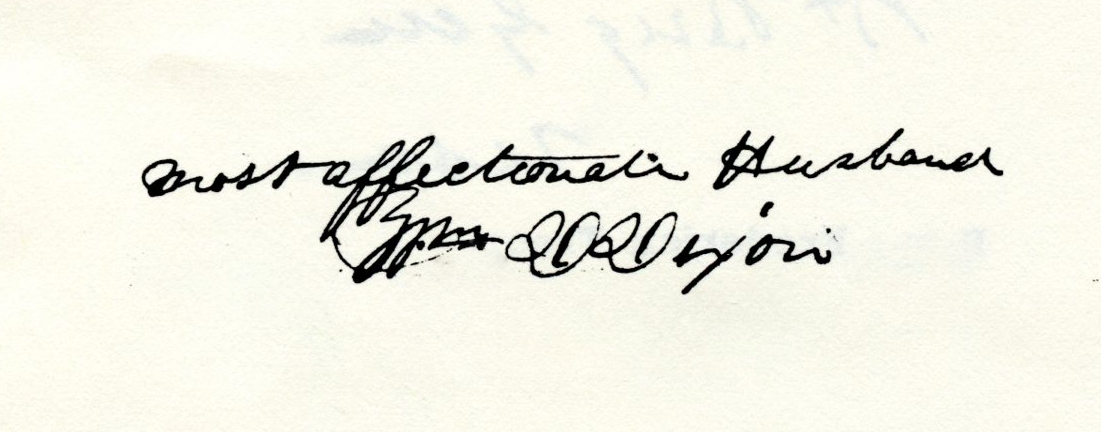 most affectionate Husband
Wm D Dixon